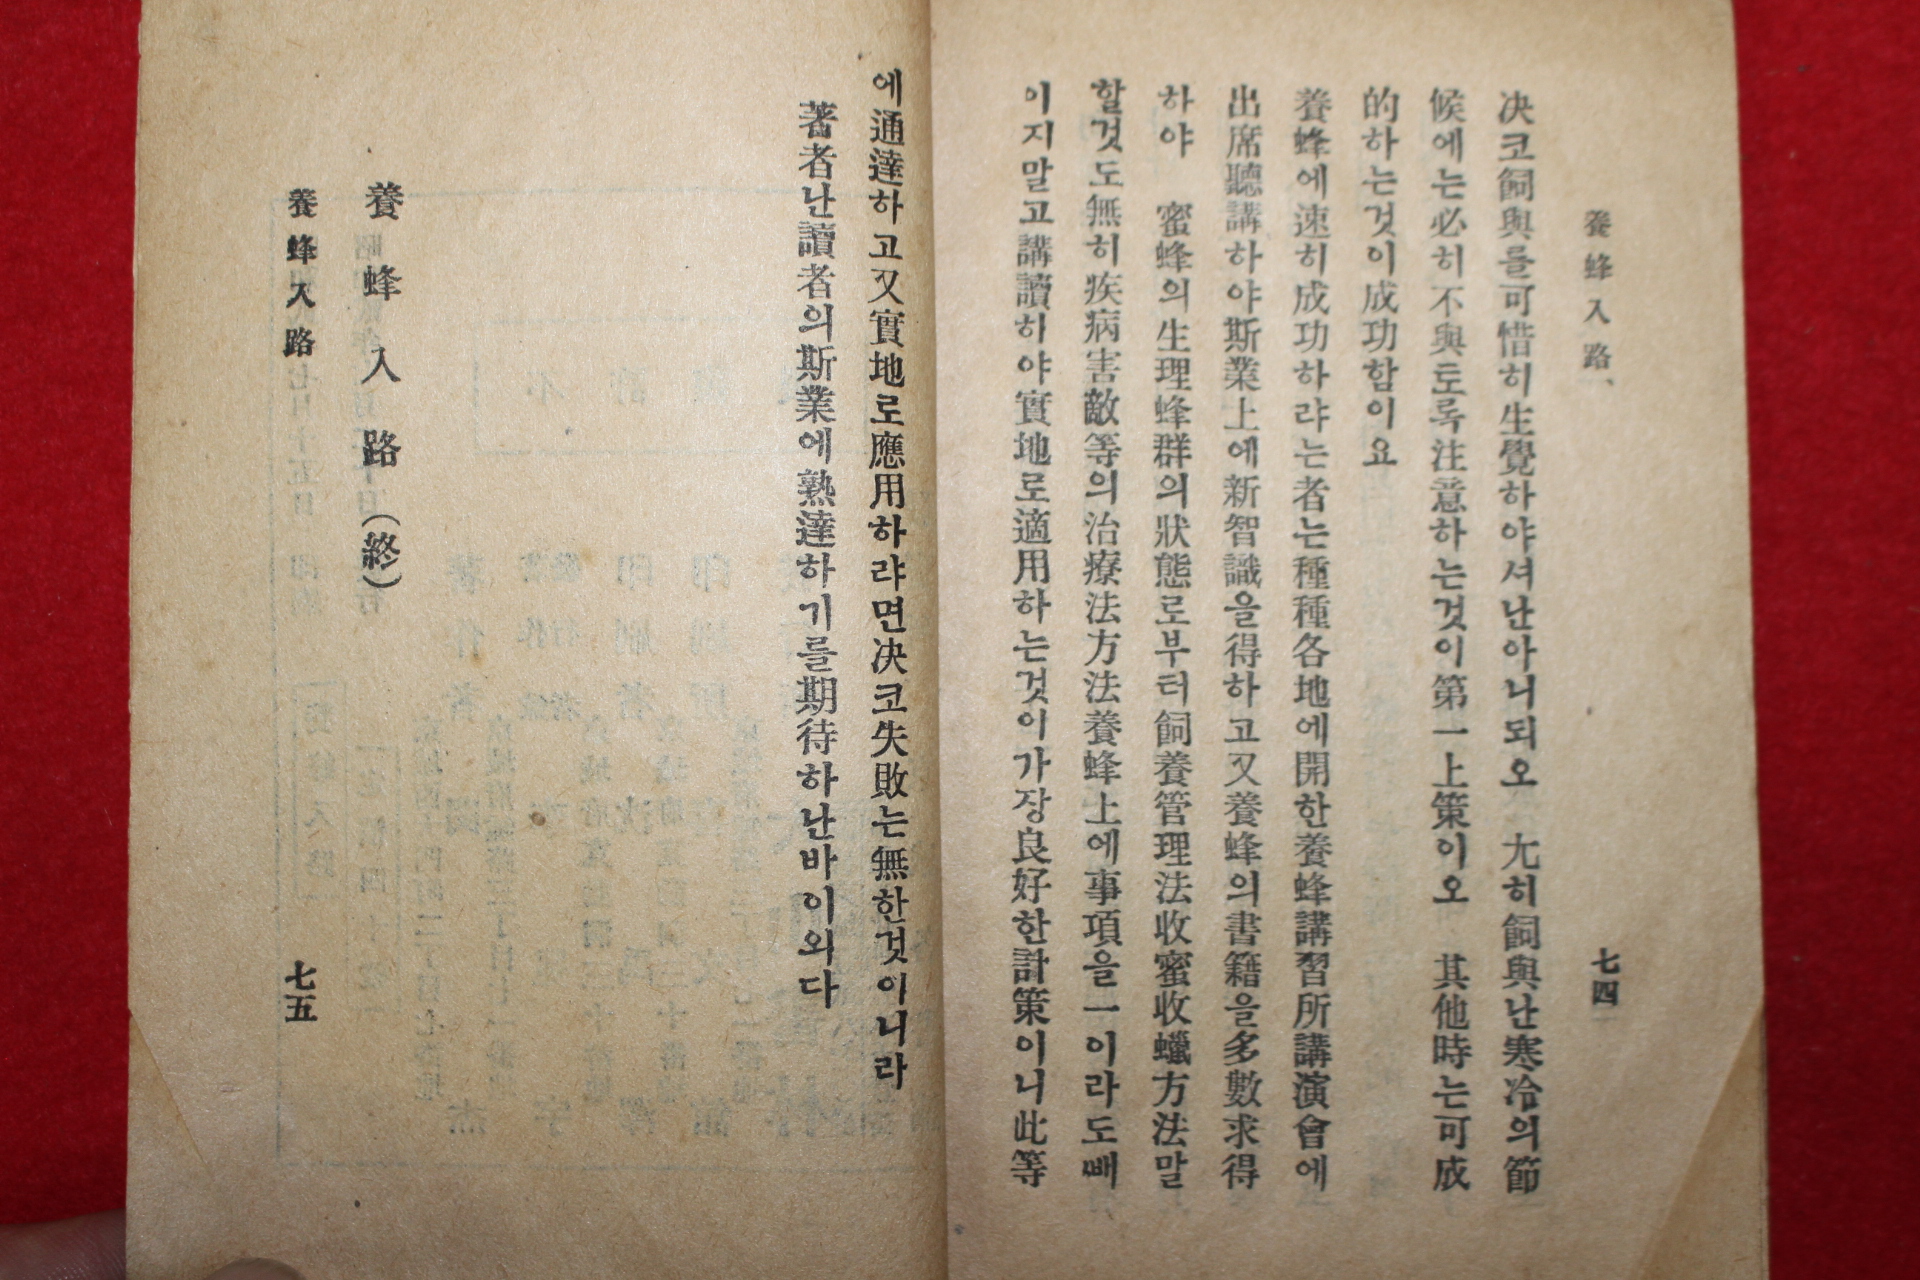 養蜂入路、
七四
決코飼與를可惜히生覺하야셔난아니되오 尤히飼與난寒冷의節
候에는必히不與토록注意하는것이第一上策이오 其他時는可成
的하는것이成功함이요
養蜂에速히成功하랴는者는種種各地에開한養蜂講習所講演會에
出席聽講하야斯業上에新智識을得하고又養蜂의書籍을多數求得
하야 蜜蜂의生理蜂群의狀態로부터飼養管理法收蜜收蠟方法말
할것도無히疾病害敵等의治療法方法養蜂上에事項을一이라도빼
이지말고講讀하야實地로適用하는것이가장良好한計策이니此等
에通達하고又實地로應用하랴면決코失敗는無한것이니라
著者난讀者의斯業에熟達하기를期待하난바이외다
養蜂入路(終)
養蜂入路
七五